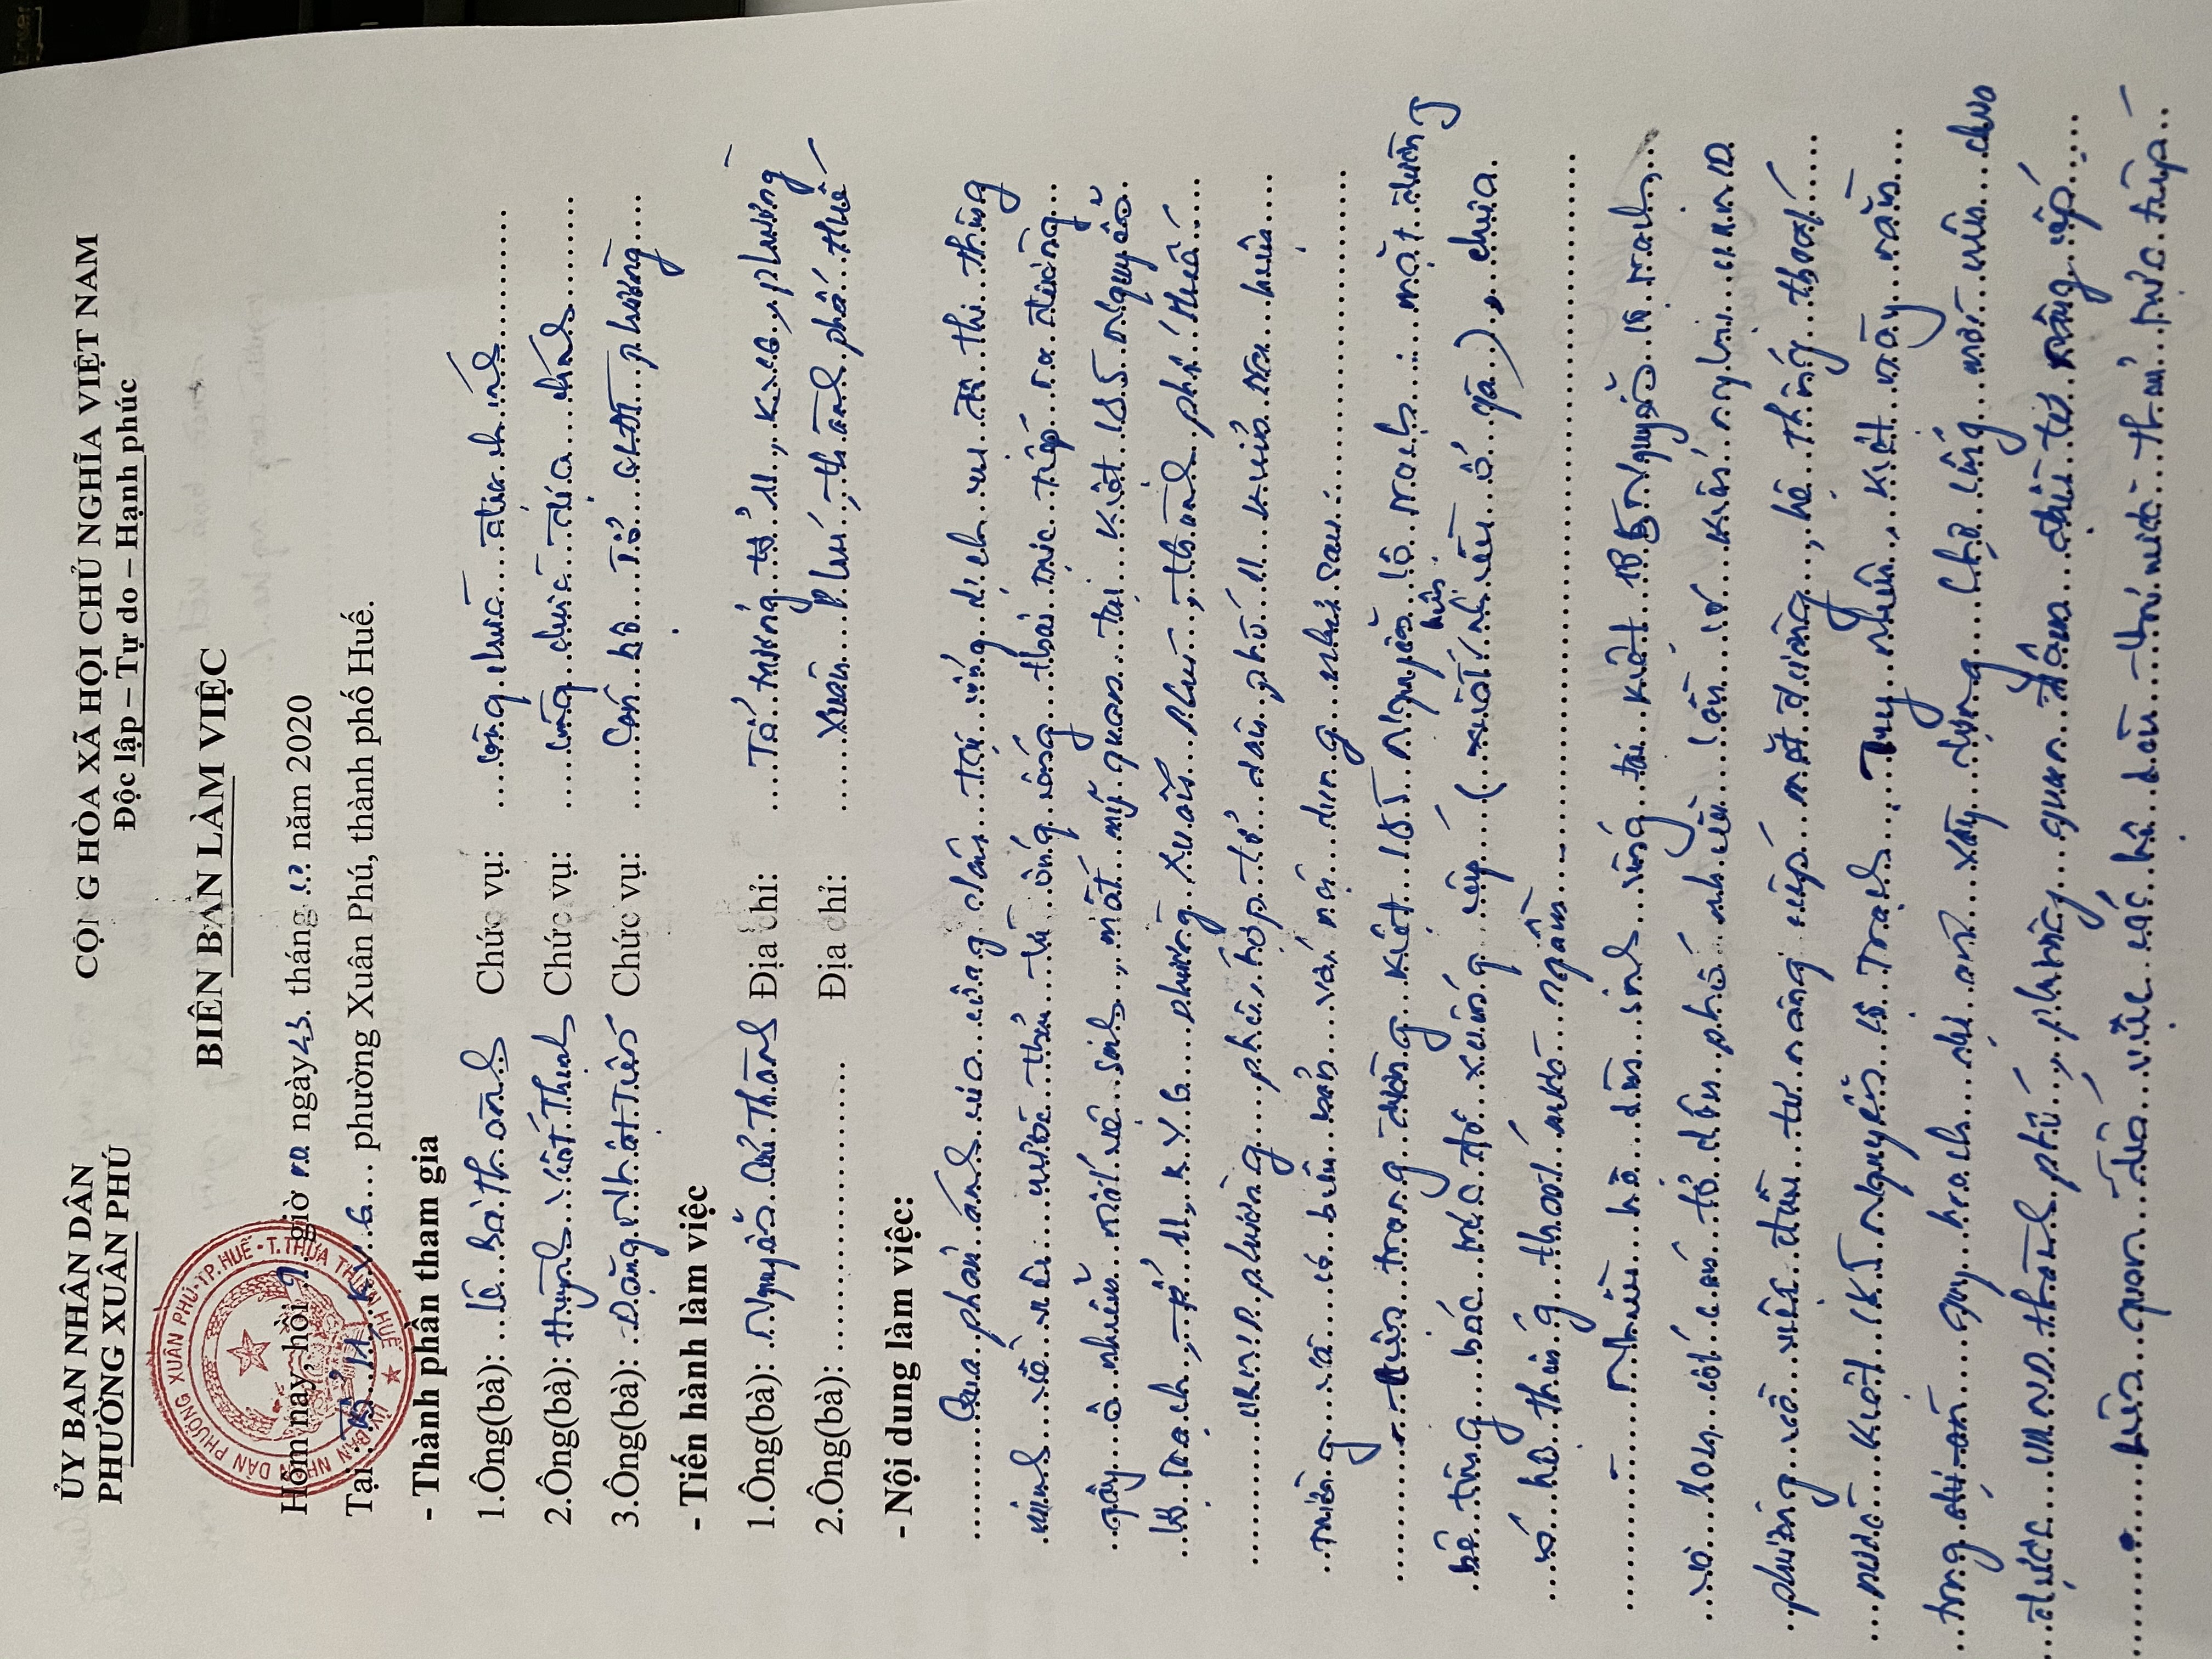 ỦY BAN NHÂN DÂN
PHƯỜNG XUÂN PHÚ
CỘNG HÒA XÃ HỘI CHỦ NGHĨA VIỆT NAM
Độc lập – Tự do – Hạnh phúc
BIÊN BẢN LÀM VIỆC
ỦY BAN NHÂN DÂN PHƯỜNG XUÂN PHÚ • TP. HUẾ • T. THỪA THIÊN HUẾ
Hôm nay, hồi 9 giờ 00 ngày 23 tháng năm 2020
Tại: Tổ 11, KV6 phường Xuân Phú, thành phố Huế.
- Thành phần tham gia
1.Ông(bà): Lê Bá Thành Chức vụ: công chức địa chính
2.Ông(bà): Huỳnh Viết Thịnh Chức vụ: công chức địa chính
3.Ông(bà): Đặng Nhật Tiến Chức vụ: Cán bộ Tổ QLĐT phường
- Tiến hành làm việc
1.Ông(bà): Nguyễn Cửu Thành Địa chỉ: Tổ trưởng tổ 11, KV6, phường
2.Ông(bà): Địa chỉ: Xuân Phú, thành phố Huế
- Nội dung làm việc:
Qua phản ánh của công dân Tại cổng dịch vụ đô thị thông
minh về nước thải từ ống cống thoát trực tiếp ra đường
gây ô nhiễm môi vệ sinh, mất mỹ quan tại kiệt 185 Nguyễn
Lộ Trạch, tổ 11, KV6 phường Xuân Phú, thành phố Huế
UBND phường phối hợp tổ dân phố 11 kiểm tra hiện
trường và có biên bản với nội dung như sau:
- Hiện trạng đường kiệt 185 Nguyễn Lộ Trạch: mặt đường
bê tông bóc trốc đã xuống cấp (xuất hiện nhiều ổ gà), chưa
có hệ thống thoát nước ngầm
- Nhiều hộ dân sinh sống tại kiệt 185 Nguyễn Lộ Trạch,
và Ban cán tổ dân phố nhiều lần có kiến nghị UBND
phường về việc đầu tư nâng cấp mặt đường, hệ thống thoát
nước kiệt 185 Nguyễn Lộ Trạch. Tuy nhiên, kiệt này nằm
trong dự án quy hoạch xây dựng Chợ Cống mới nên chưa
được UBND thành phố, phường quan tâm đầu tư nâng cấp
Liên quan đến việc các hộ dân nước thải trực tiếp